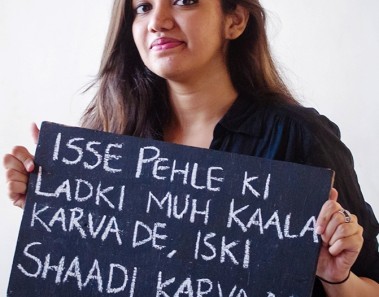 ISSE PEHLE KI
LADKI MUH KAALA
KARVA DE, ISKI
SHAADI KARVA